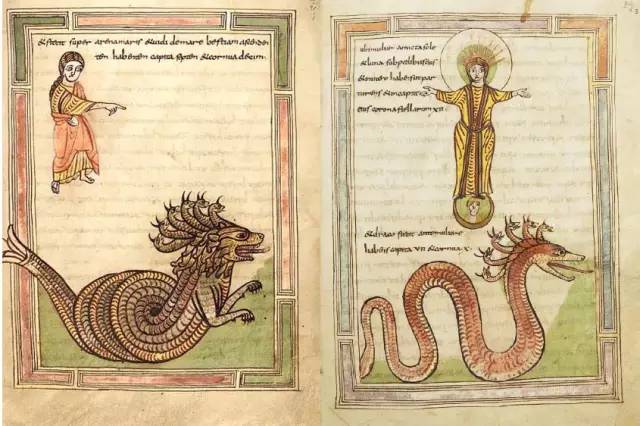 &stetit super arenamaris &uidi demare bestiam ascenden
tem habentem capita septem &cornua decem.
mulier amicta sole
&luna subpedibus eius
corona stellarum xii
&draco stetit antemuliere
habens capita vii &cornua x.